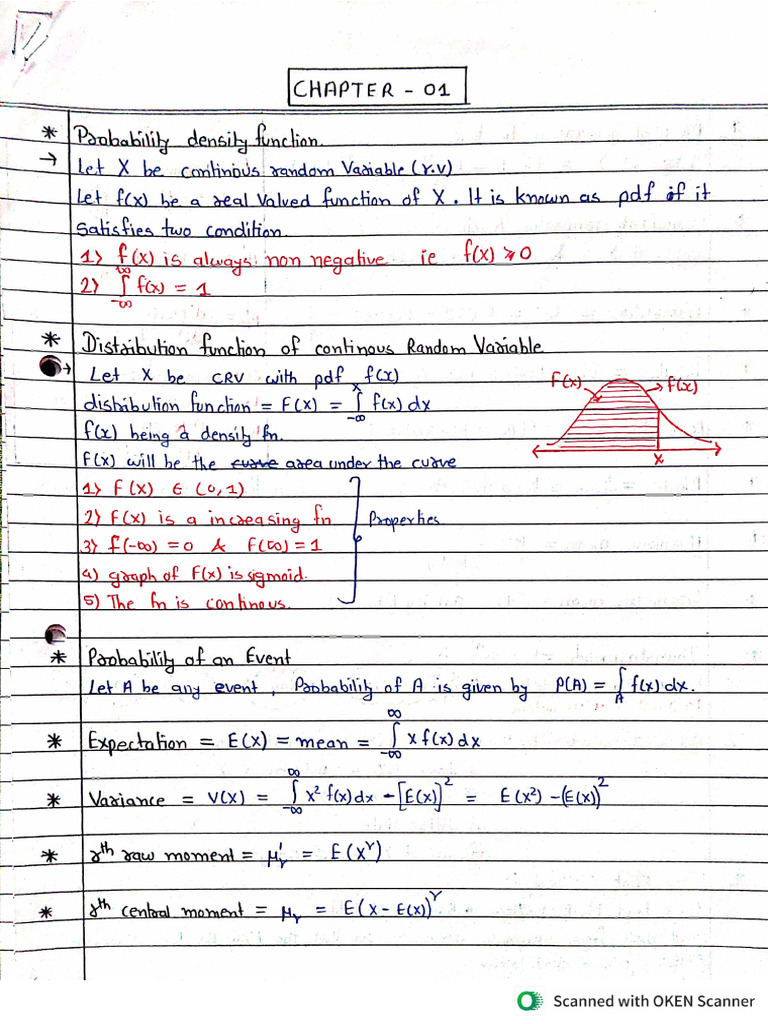 CHAPTER - 01
* Probability density function.
→ Let X be continious random Variable (r.v)
Let f(x) be a real valued function of X. It is known as pdf if it
satisfies two condition.
1) f(x) is always non negative ie f(x) ≥ 0
2) ∫_{-∞}^{∞} f(x) = 1
* Distribution function of continous Random Variable
→ Let X be CRV with pdf f(x)
distribution function = F(x) = ∫_{-∞}^{x} f(x) dx
f(x) being a density fn.
F(x) will be the curve area under the curve
F(x) f(x)
x
1) F(x) ∈ (0,1)
2) F(x) is a increasing fn
3) f(-∞) = 0 & F(∞) = 1
4) graph of F(x) is sigmoid.
5) The fn is continous.
Properties
* Probability of an Event
Let A be any event, Probability of A is given by P(A) = ∫_A f(x) dx.
* Expectation = E(x) = mean = ∫_{-∞}^{∞} x f(x) dx
* Variance = V(x) = ∫_{-∞}^{∞} x² f(x) dx - [E(x)]² = E(x²) - (E(x))²
* rth raw moment = μ'_r = E(x^r)
* rth central moment = μ_r = E(x - E(x))^r
Scanned with OKEN Scanner